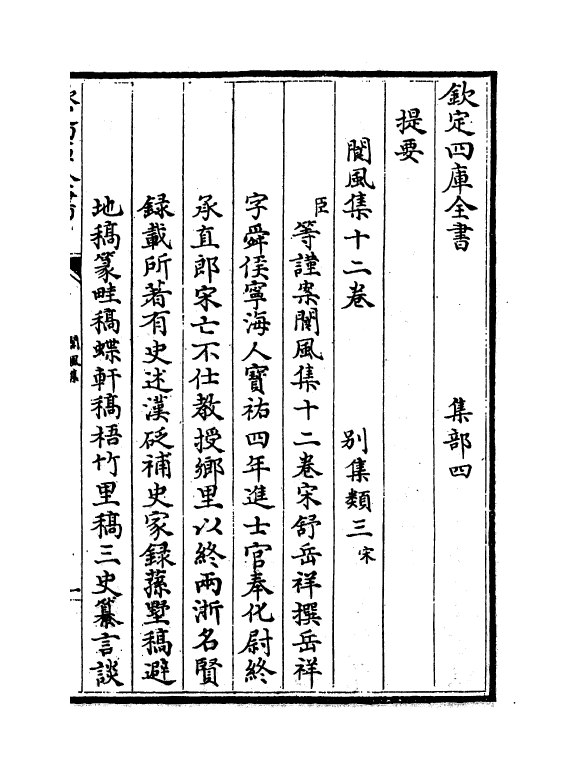 欽定四庫全書　集部四
提要
閬風集十二卷　別集類三宋
臣等謹案閬風集十二卷宋舒岳祥撰岳祥
字舜侯寧海人寶祐四年進士官奉化尉終
承直郎宋亡不仕教授鄉里以終兩浙名賢
録載所著有史述漢砭補史家録蓀墅稿避
地稿篆畦稿蝶軒稿梧竹里稿三史纂言談
閬風集
一